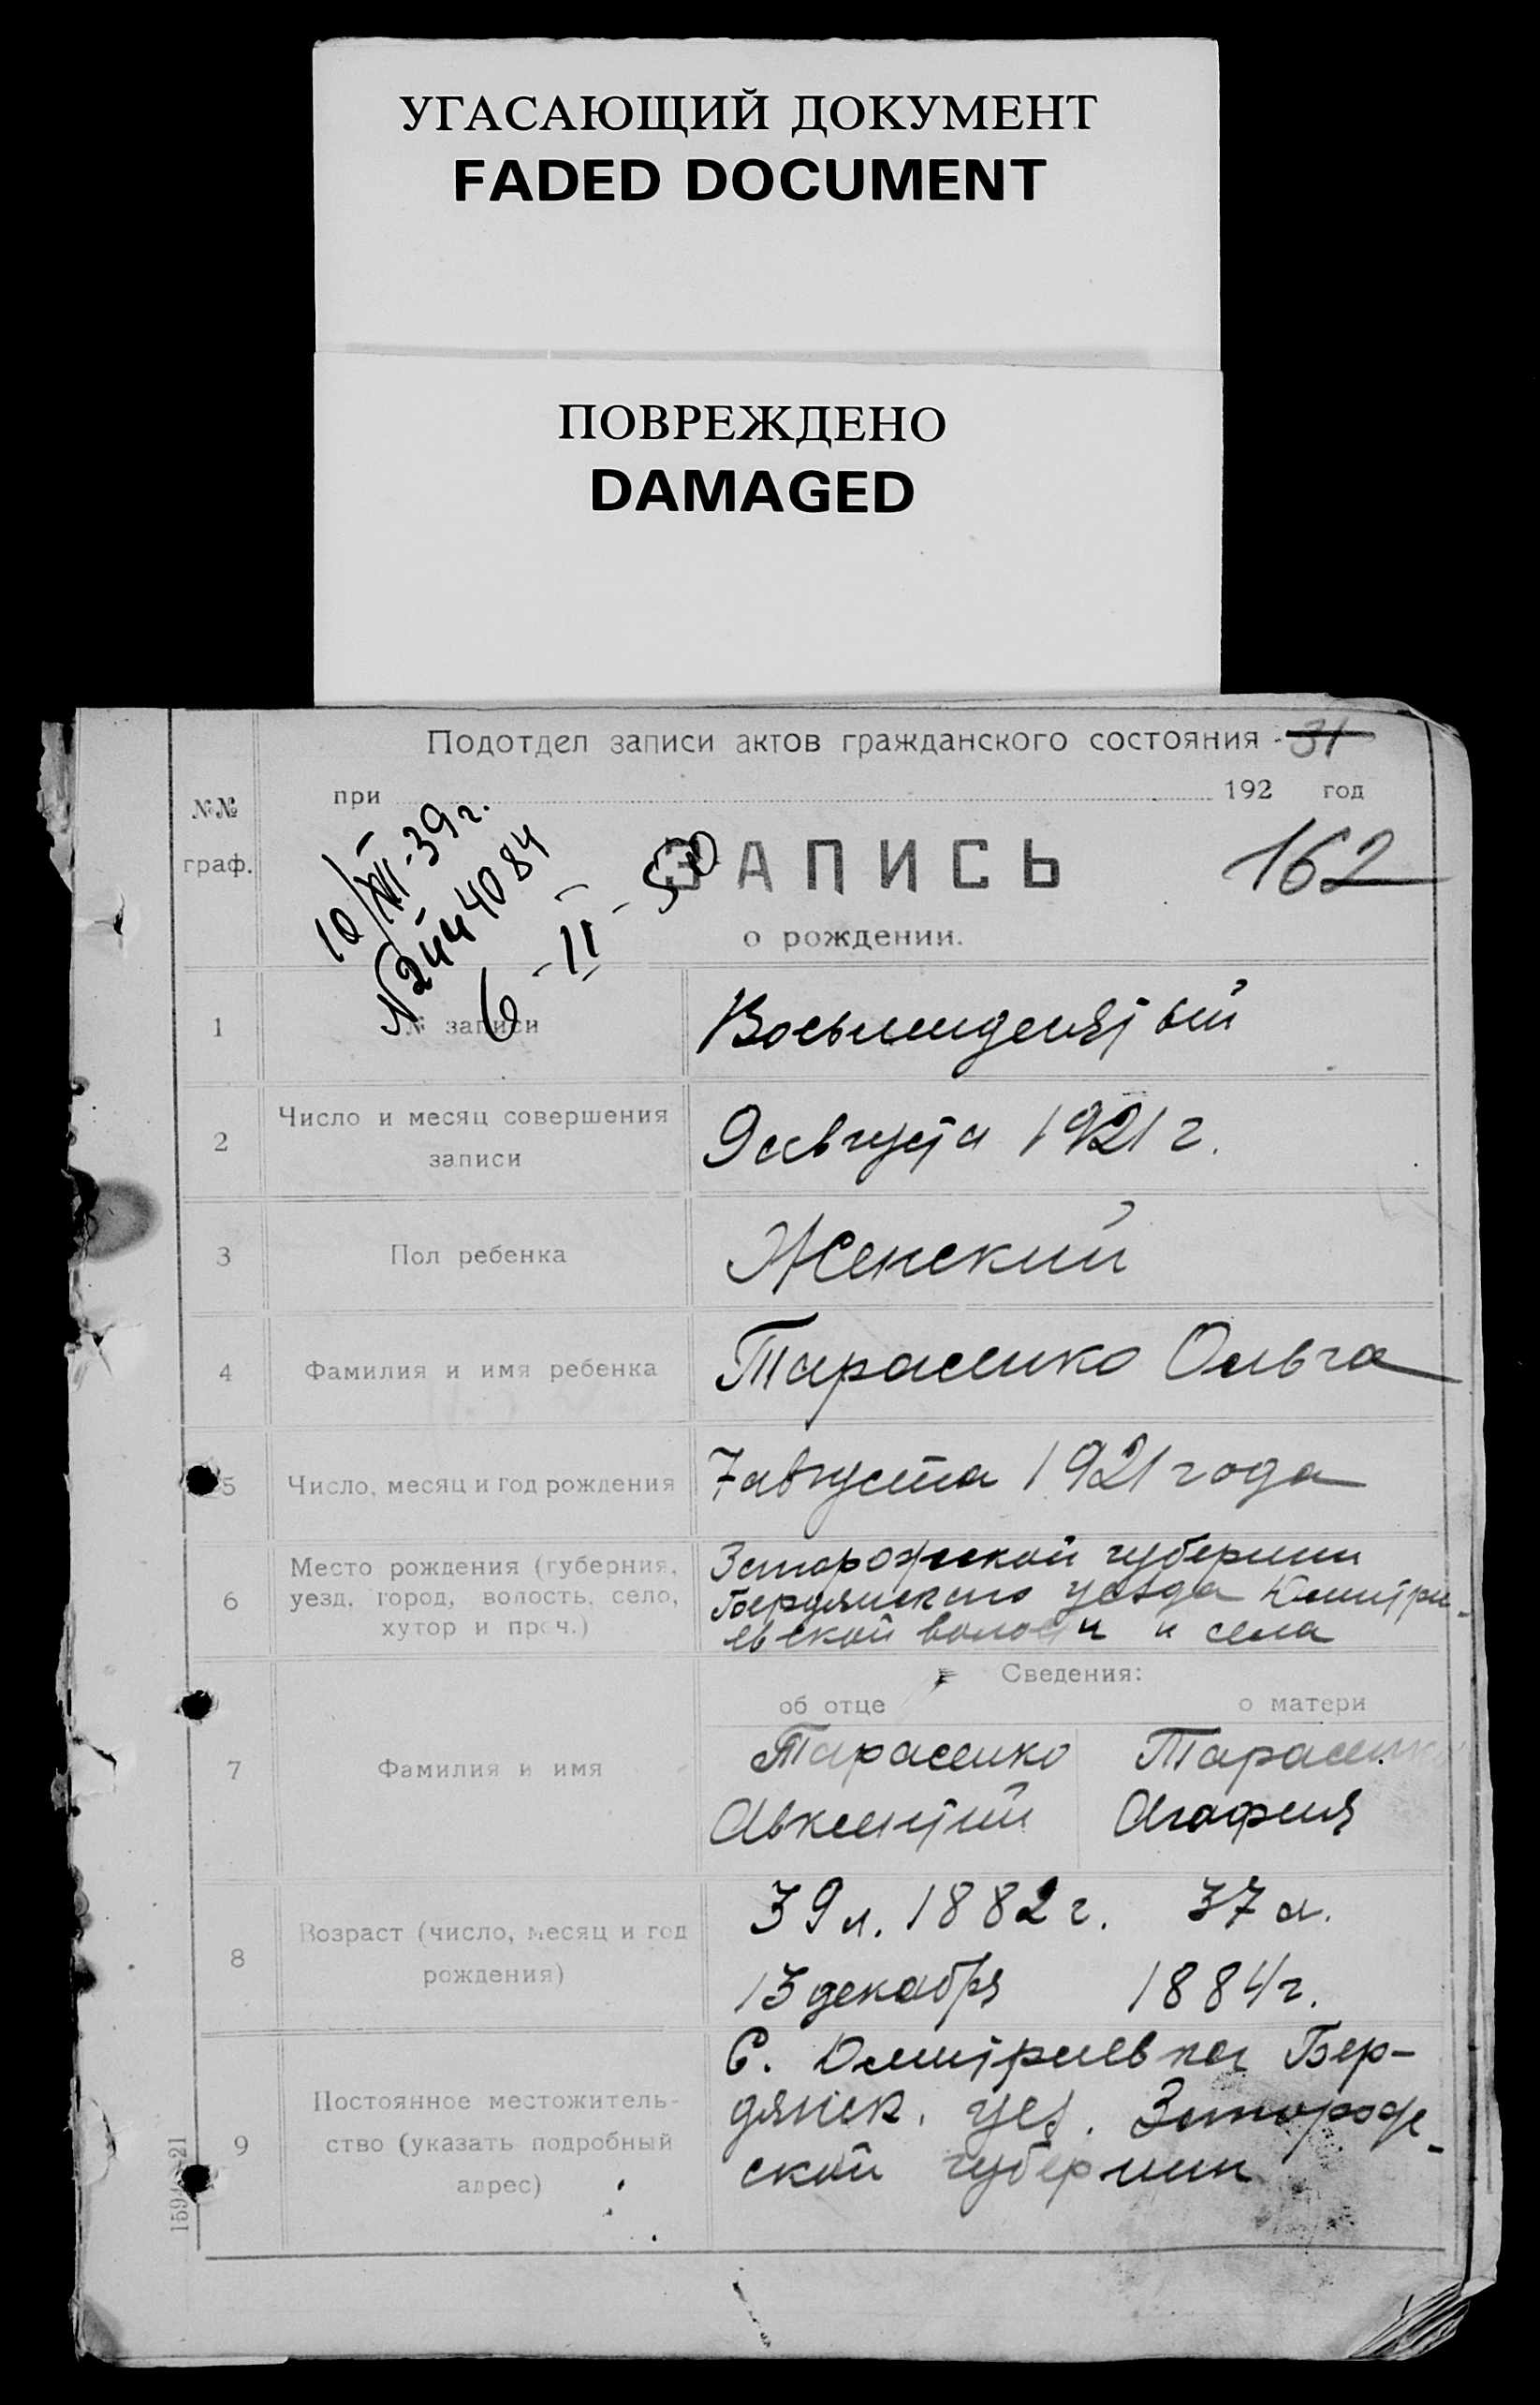 УГАСАЮЩИЙ ДОКУМЕНТ
FADED DOCUMENT
ПОВРЕЖДЕНО
DAMAGED
Подотдел записи актов гражданского состояния - 31
№№
граф.
при 192 год
10/XII-39 г.
ЗАПИСЬ
162
6 - II - 50
о рождении.
1
№ записи
Восьмидесятый
2
Число и месяц совершения
записи
9 августа 1921 г.
3
Пол ребенка
Женский
4
Фамилия и имя ребенка
Тарасенко Ольга
5
Число, месяц и год рождения
7 августа 1921 года
6
Место рождения (губерния,
уезд, город, волость, село,
хутор и проч.)
Запорожской губернии
Бердянского уезда Дмитри-
евской волости и села
Сведения:
об отце
о матери
7
Фамилия и имя
Тарасенко
Авксентий
Тарасенко
Агафия
8
Возраст (число, месяц и год
рождения)
39 л. 1882 г.
13 декабря
37 л.
1884 г.
9
Постоянное местожитель-
ство (указать подробный
адрес)
С. Дмитриевка Бер-
дянск. уез. Запорож-
ской губернии